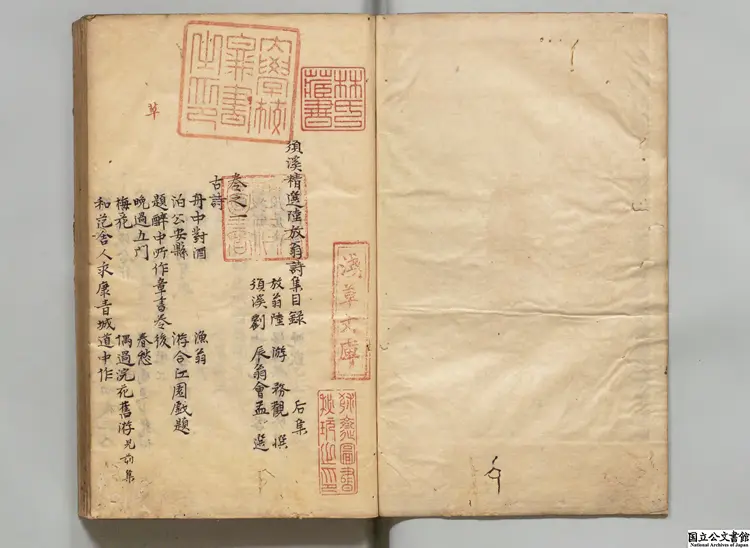 須溪精選陸放翁詩集目録 后集
放翁陸 游 務觀 撰
須溪劉 辰翁會孟 選
卷之一
古詩
舟中對酒 漁翁
泊公安縣 游合江園戲題
題醉中所作草書卷後
晚過五門 春愁
梅花 偶過浣花舊游見前集
和范舍人永康青城道中作
草
大學校
弉書
之印
林氏
藏書
淺草文庫
国立公文書館
National Archives of Japan